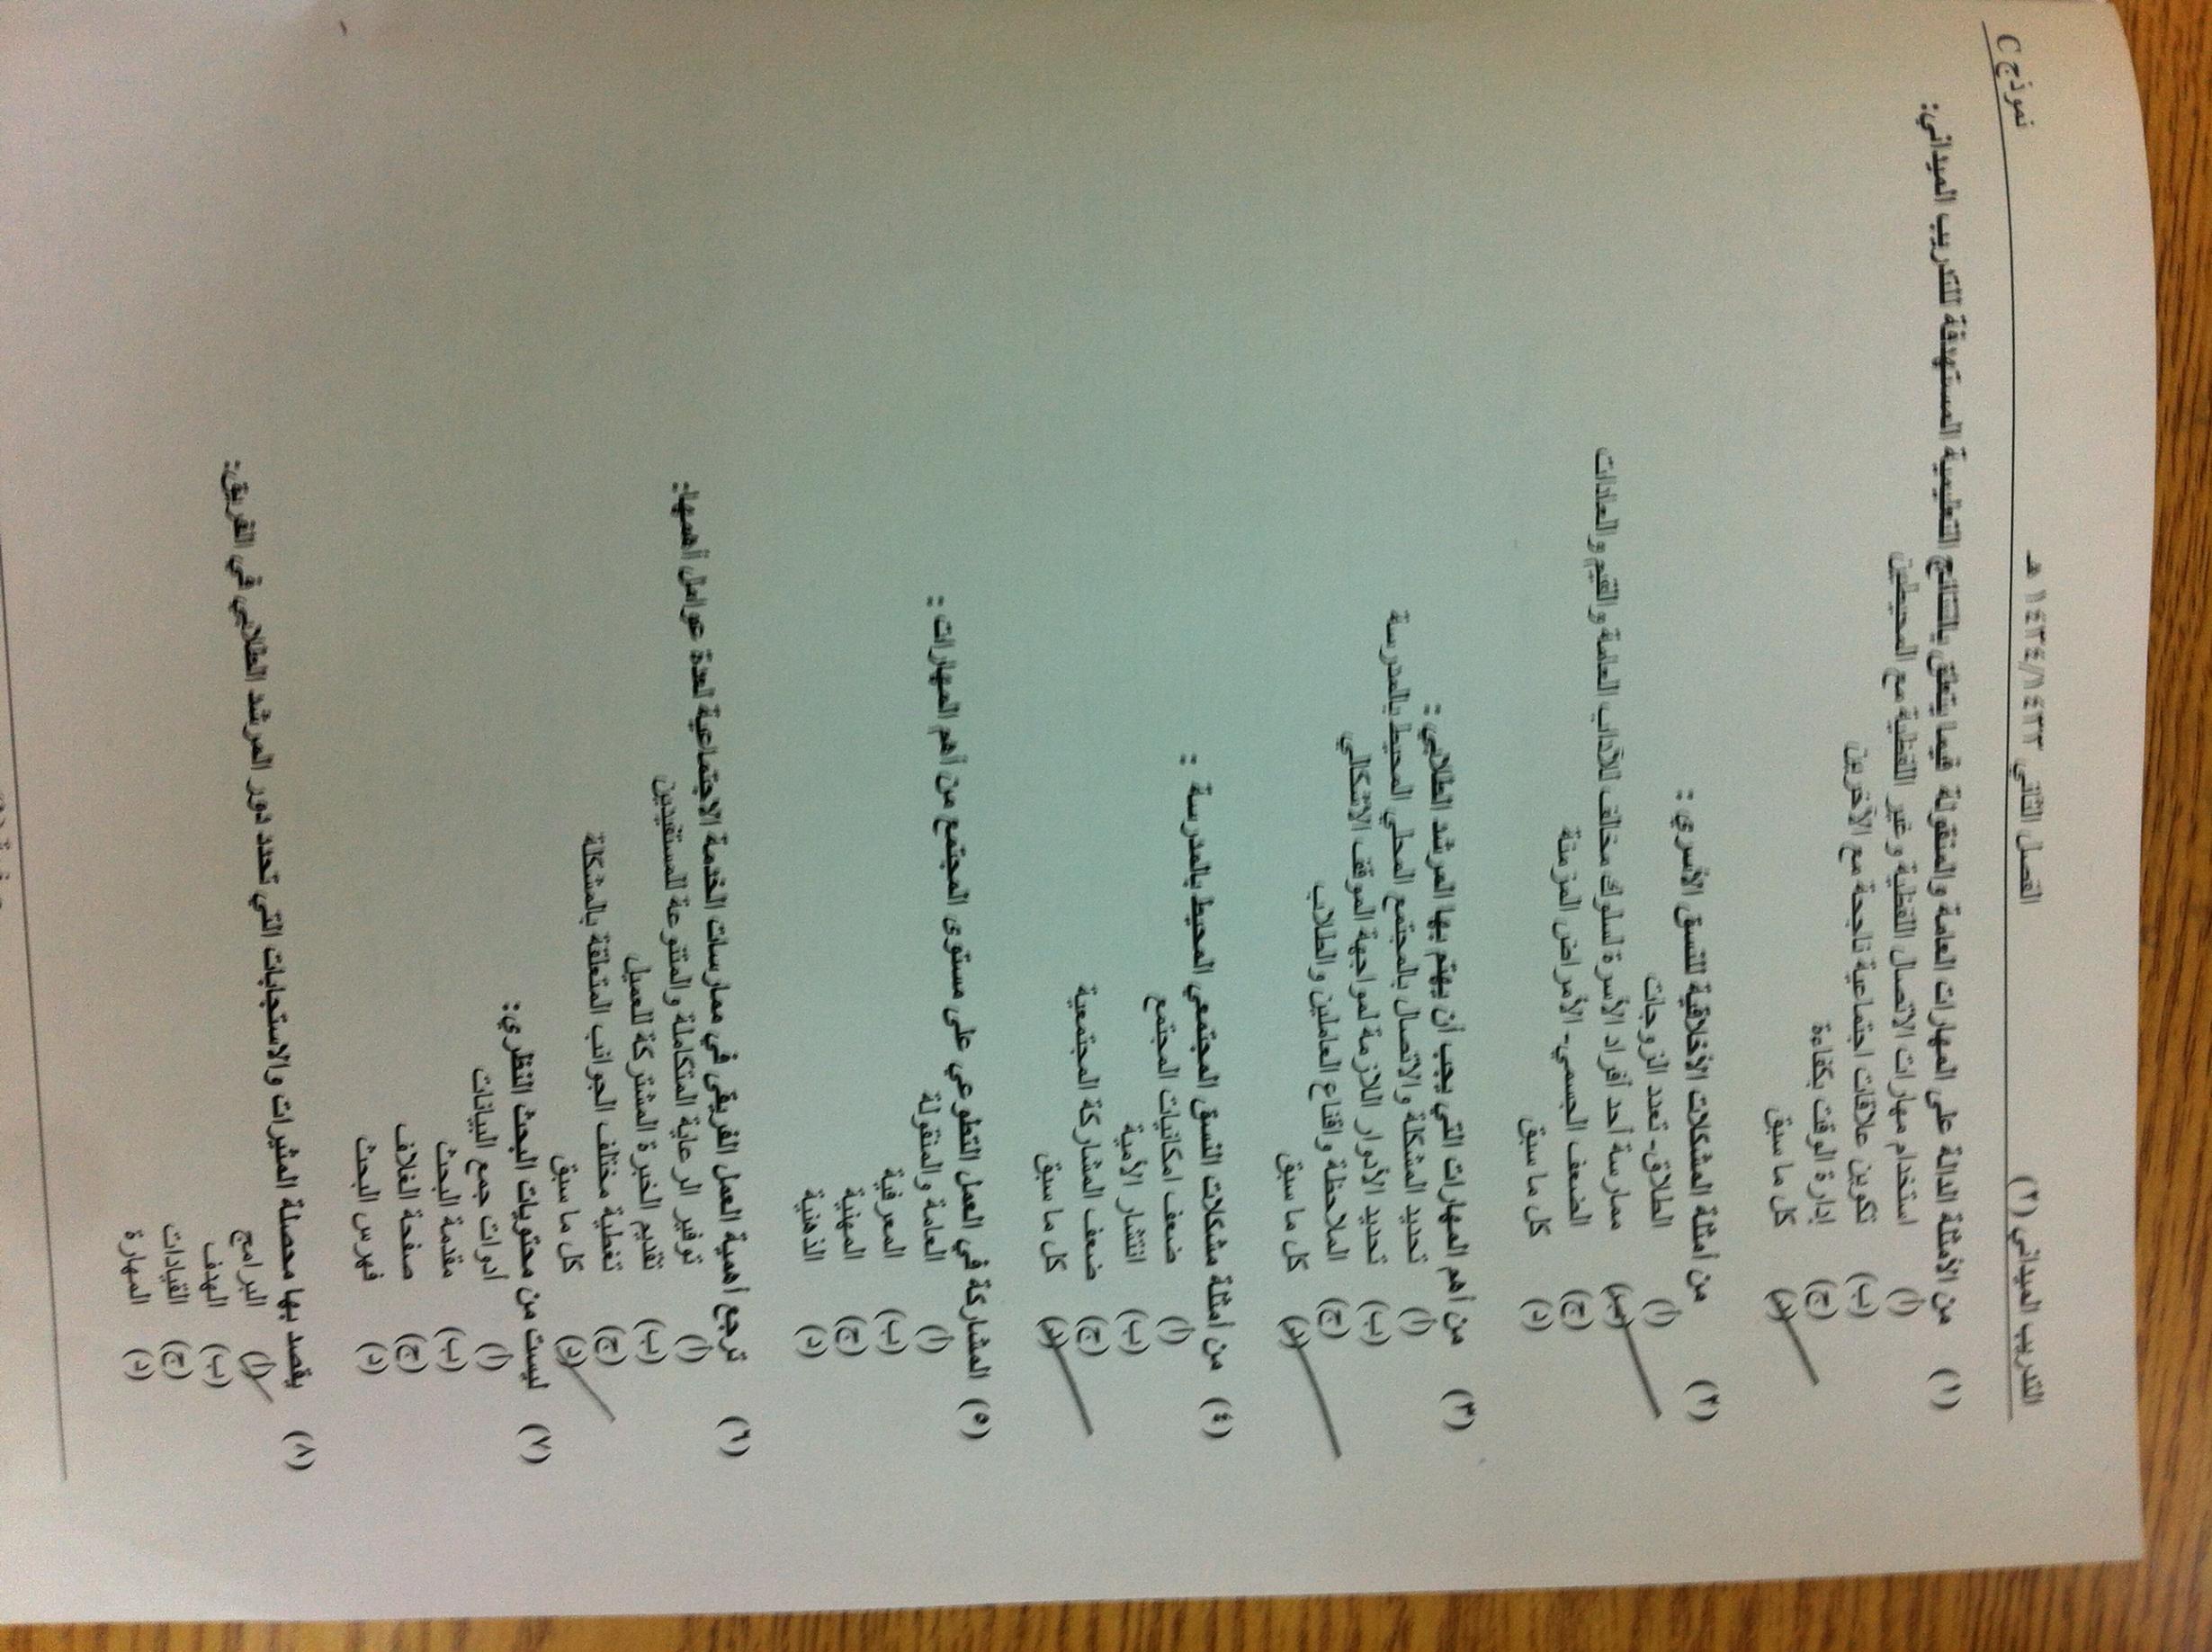 التدريب الميداني (٢) الفصل الثاني ١٤٣٤/١٤٣٣ هـ نموذج C
(١) من الأمثلة الدالة على المهارات العامة والمنقولة فيما يتعلق بالنتائج التعليمية المستهدفة للتدريب الميداني:
(أ) استخدام مهارات الاتصال اللفظية وغير اللفظية مع المحيطين
(ب) تكوين علاقات اجتماعية ناجحة مع الآخرين
(ج) إدارة الوقت بكفاءة
(د) كل ما سبق
(٢) من أمثلة المشكلات الأخلاقية للنسق الأسري :
(أ) الطلاق- تعدد الزوجات
(ب) ممارسة أحد أفراد الأسرة لسلوك مخالف للآداب العامة والقيم والعادات
(ج) الضعف الجسمي- الأمراض المزمنة
(د) كل ما سبق
(٣) من أهم المهارات التي يجب أن يهتم بها المرشد الطلابي :
(أ) تحديد المشكلة والاتصال بالمجتمع المحلي المحيط بالمدرسة
(ب) تحديد الأدوار اللازمة لمواجهة الموقف الاشكالي
(ج) الملاحظة واقناع العاملين والطلاب
(د) كل ما سبق
(٤) من أمثلة مشكلات النسق المجتمعي المحيط بالمدرسة :
(أ) ضعف امكانيات المجتمع
(ب) انتشار الأمية
(ج) ضعف المشاركة المجتمعية
(د) كل ما سبق
(٥) المشاركة في العمل التطوعي على مستوى المجتمع من أهم المهارات :
(أ) العامة والمنقولة
(ب) المعرفية
(ج) المهنية
(د) الذهنية
(٦) ترجع أهمية العمل الفريقي في ممارسات الخدمة الاجتماعية لعدة عوامل أهمها:
(أ) توفير الرعاية المتكاملة والمتنوعة للمستفيدين
(ب) تقديم الخبرة المشتركة للعميل
(ج) تغطية مختلف الجوانب المتعلقة بالمشكلة
(د) كل ما سبق
(٧) ليست من محتويات البحث النظري:
(أ) أدوات جمع البيانات
(ب) مقدمة البحث
(ج) صفحة الغلاف
(د) فهرس البحث
(٨) يقصد بها محصلة المثيرات والاستجابات التي تحدد دور المرشد الطلابي في الفريق:
(أ) البرامج
(ب) الهدف
(ج) القيادات
(د) المهارة